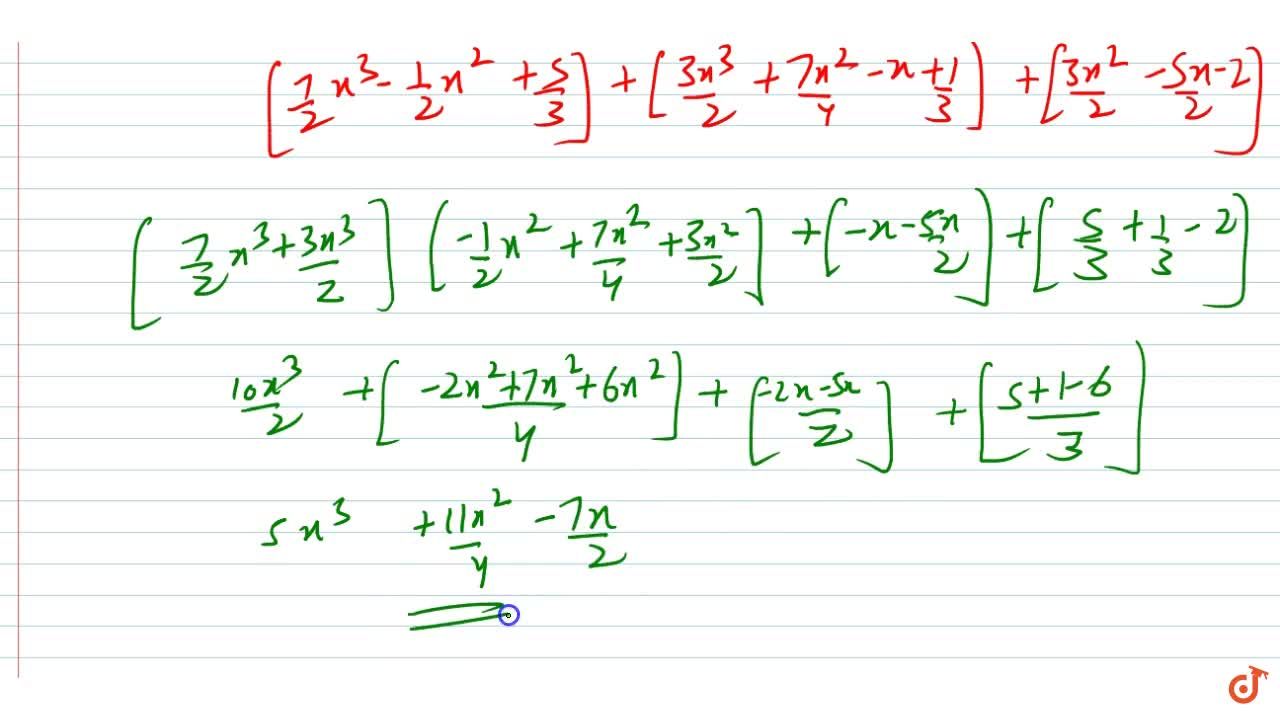 [7/2 x³ - 1/2 x² + 5/3] + [3x³/2 + 7x²/4 - x + 1/3] + [3x²/2 - 5x/2 - 2]
[7/2 x³ + 3x³/2] [-1/2 x² + 7x²/4 + 3x²/2] + [-x - 5x/2] + [5/3 + 1/3 - 2]
10x³/2 + [(-2x² + 7x² + 6x²)/4] + [(-2x - 5x)/2] + [(5 + 1 - 6)/3]
5x³ + 11x²/4 - 7x/2